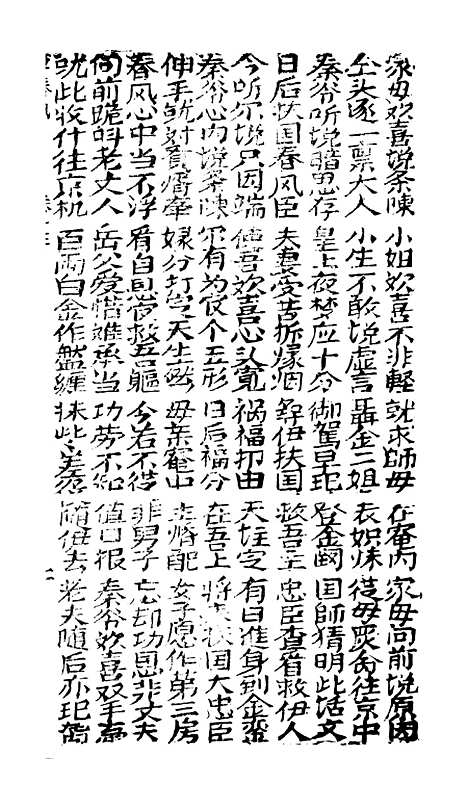 家母欢喜说条陳 小姐欢喜不非輕 就求師母在奄内 家母向前说原因
从头逐一禀大人 小生不敢说虚言 聶金二姐表姊妹 從母命往京中
秦爷听说暗思存 皇上夜梦应十分 御駕早已登金闕 国師猜明此话文
日后扶国春风臣 夫妻受苦拆緣烟 伊扶国救吾主 忠臣查看救伊人
今听尔说只因端 使吾欢喜心头寬 祸福由天柱定 有日進身到金銮
秦爷心内说条陳 尔有为官个五形 日后福分在吾上 將來扶国大忠臣
伸手就对育婿牵 缘分打定天生成 母亲奄中主婚配 女子愿作第三房
春风心中当不浮 看自恩爱救吾軀 今若不從非男子 忘却功恩非丈夫
向前跪叫老丈人 岳父爱惜难承当 功劳不知值日报 秦爷欢喜双手牽
就此收什往京机 百兩白金作盤纏 妹此 随伊去 老夫随后亦起